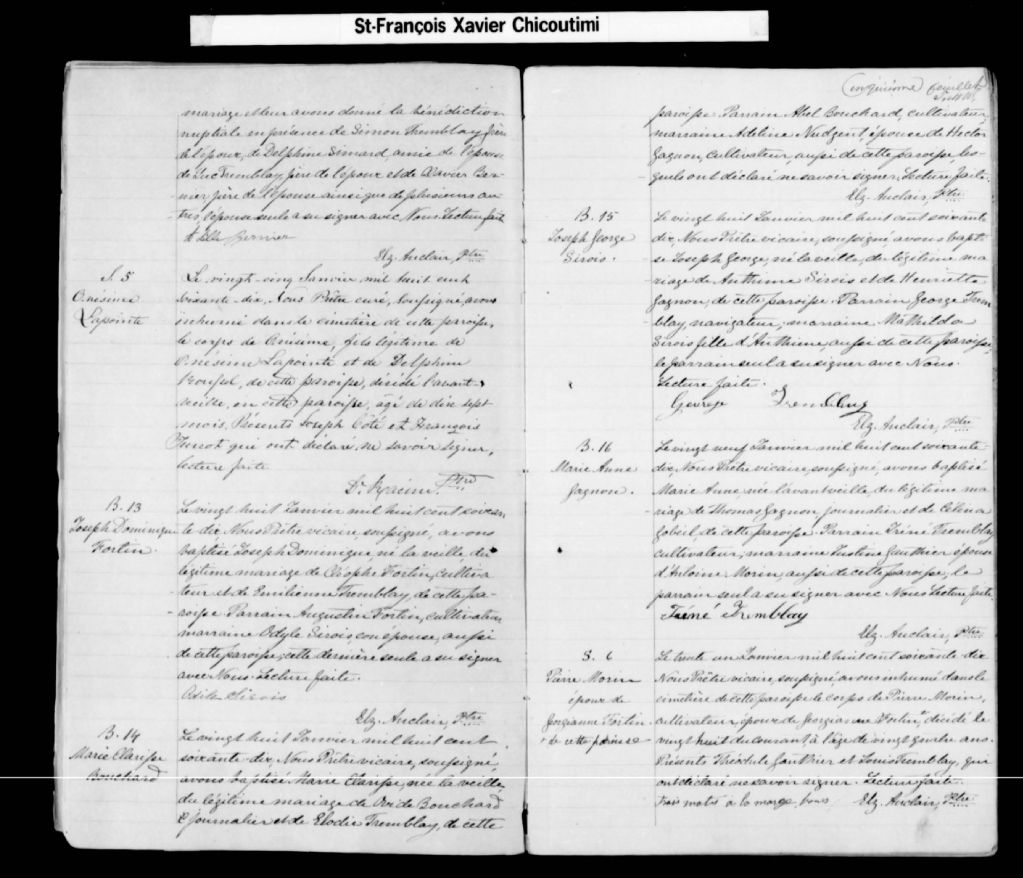 St-François Xavier Chicoutimi
mariage et leur avons donné la bénédiction
nuptiale en présence de Simon Tremblay, frère
de l'époux, de Delphine Simard, amie de l'épouse
de Luc Tremblay, père de l'époux et de Xavier Ber-
nier, père de l'épouse ainsi que de plusieurs au-
tres, l'épouse seule a su signer avec Nous. Lecture faite
Bernier
Elz. Auclair, Ptre
S. 5
Onésime
Lapointe
Le vingt-cinq Janvier mil huit cent
soixante-dix, Nous Prêtre curé, soussigné, avons
inhumé dans le cimetière de cette paroisse,
le corps de Onésime, fils légitime de
Onésime Lapointe et de Delphine
de cette paroisse, décédé l'avant-
veille, en cette paroisse, âgé de dix sept
mois. Présents Joseph Côté et François
Turcot qui ont déclaré ne savoir signer,
lecture faite
D. Racine Ptre
B. 13
Joseph Dominique
Fortin.
Le vingt huit Janvier mil huit cent soixan-
te dix, Nous Prêtre vicaire, soussigné, avons
baptisé Joseph Dominique né la veille, du
légitime mariage de Cléophe Fortin, cultiva
teur et de Emilienne Tremblay, de cette pa-
roisse Parrain Augustin Fortin, cultivateur
marraine Odyle Sirois son épouse, aussi
de cette paroisse, cette dernière seule a su signer
avec Nous. Lecture faite.
Odile Sirois
Elz. Auclair, Ptre
B. 14
Marie Clarisse
Bouchard
Le vingt huit Janvier mil huit cent
soixante-dix, Nous Prêtre vicaire, soussigné,
avons baptisé Marie Clarisse, née la veille,
du légitime mariage de Ovide Bouchard
journalier et de Elodie Tremblay, de cette
feuillet
paroisse. Parrain Abel Bouchard, cultivateur,
marraine Adeline Nudgent, épouse de Hector
Gagnon, cultivateur, aussi de cette paroisse, les-
quels ont déclaré ne savoir signer. Lecture faite.
Elz. Auclair, Ptre
B. 15
Joseph George
Sirois.
Le vingt huit Janvier mil huit cent soixante
dix, Nous Prêtre vicaire, soussigné avons bapti-
sé Joseph George, né la veille, du légitime ma
riage de Anthime Sirois et de Henriette
Gagnon, de cette paroisse. Parrain George Trem
blay, navigateur, marraine Mathilda
Sirois fille d'Anthime, aussi de cette paroisse,
le parrain seul a su signer avec Nous.
Lecture faite.
George Tremblay
Elz. Auclair, Ptre
B. 16
Marie Anne
Gagnon.
Le vingt neuf Janvier mil huit cent soixante
dix, Nous Prêtre vicaire, soussigné, avons baptisé
Marie Anne, née l'avant veille, du légitime ma
riage de Thomas Gagnon, journalier et de Célina
Gobeil, de cette paroisse. Parrain Iréné Tremblay
cultivateur, marraine Justine Gauthier épouse
d'Antoine Morin, aussi de cette paroisse, le
parrain seul a su signer avec Nous. Lecture faite.
Iréné Tremblay
Elz. Auclair, Ptre
S. 6
Pierre Morin
époux de
Georgianne Fortin
+ de cette paroisse
Le trente un Janvier mil huit cent soixante dix
Nous Prêtre vicaire, soussigné avons inhumé dans le
cimetière de cette paroisse le corps de Pierre Morin,
cultivateur, époux de Georgianne Fortin + décédé le
vingt huit du courant, à l'âge de vingt quatre ans.
Présents Théodule Gauthier et Louis Tremblay, qui
ont déclaré ne savoir signer. Lecture faite.
trois mots à la marge, bons Elz. Auclair, Ptre